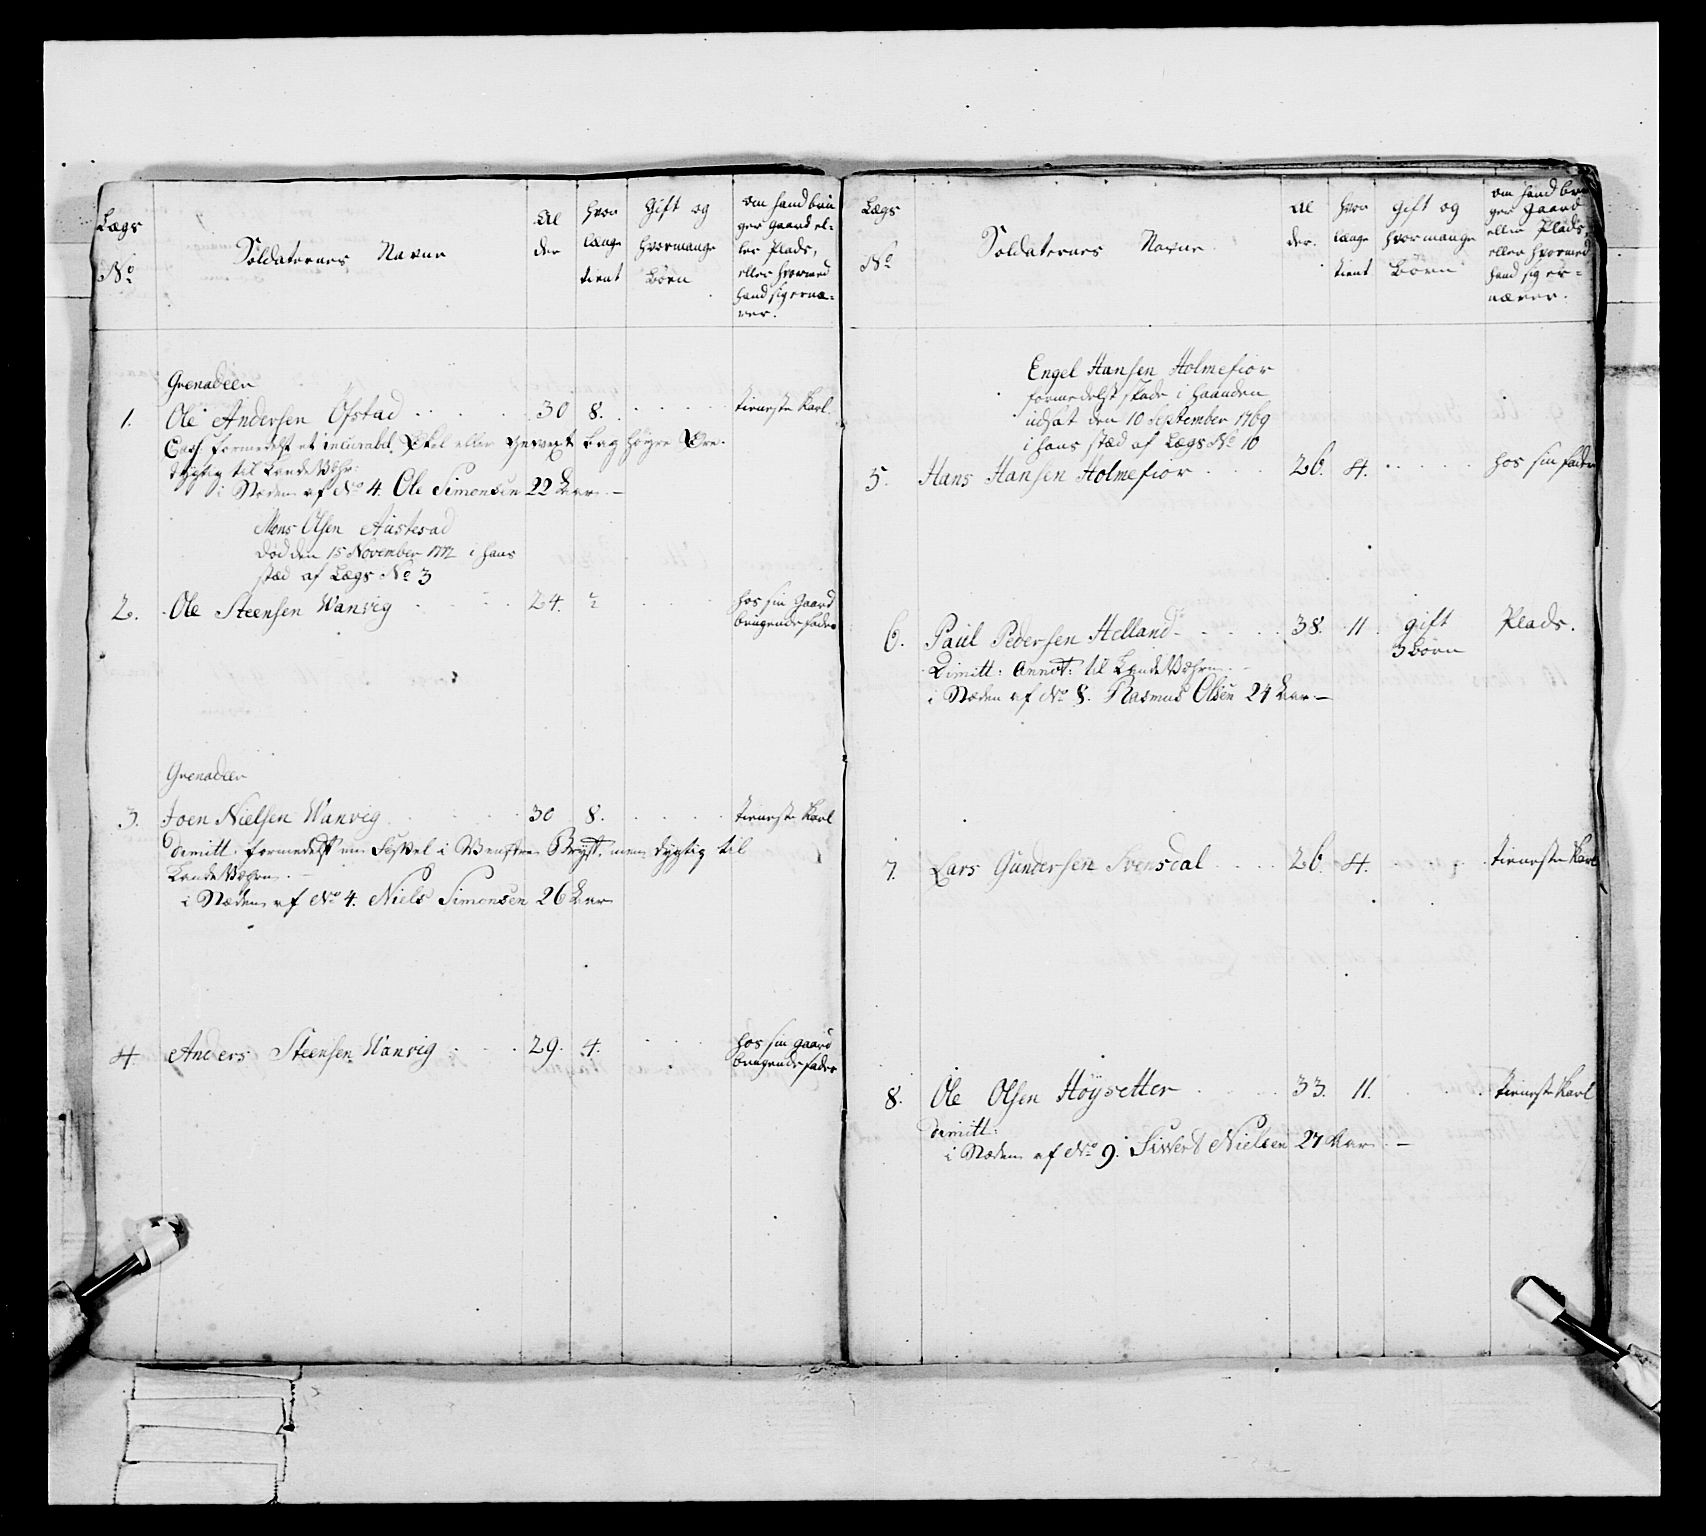 Lægs
No
Soldaternes Navne
Al
der
hvor
længe
tient
Gift og
hvormange
Børn
om hand bru
ger gaard el-
ler Plads,
eller hvormed
hand sig ernæ-
rer.
Grenadeer
1. Ole Andersen Ofstad 30 8. tieneste Karl.
Cass: formedelst et incurabel eller bag høyre Øre.
dygtig til LandeVærn:
i Stæden af No 4. Ole Simonsen 22 Aar. —
Mons Olsen Austestad
død den 15 November 1772 i hans
stæd af Lægs No 3
2. Ole Steensen Wanvig 24. hos sin Gaard
brugende fader
Grenadeer
3. Joen Nielsen Wanvig 30 8. tieneste Karl
dimitt: formedelst en i Venstre Bryst, men dygtig til
LandeVærn. —
i Stæden af No 4. Niels Simonsen 26 Aar
4. Anders Steensen Wanvig 29. 4. hos sin gaard
brugende fader
Lægs
No
Soldaternes Navne
Al
der.
hvor
længe
tient
gift og
hvormange
Børn
om hand bru
ger Gaard
eller Plads,
eller hvormed
hand sig er-
nærer.
Engel Hansen Holmefior
formedelst skade i haanden
udsat den 10 September 1769
i hans stæd af Lægs No 10
5. Hans Hansen Holmefior 26. 4. hos sin fader
6. Paul Pedersen Helland 38. 11. gift Plads.
3 børn
Dimitt: Annot: til LandeVærn. —
i Stæden af No 8. Rasmus Olsen 24 Aar —
7. Lars Gundersen Svensdal 26. 4. tieneste Karl
8. Ole Olsen Höysetter 33. 11. tieneste Karl
dimitt:
i Stæden af No 9. Sivert Nielsen 27 Aar. —